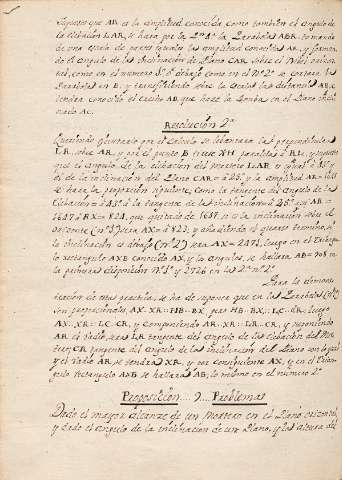 supuesto que AR es la amplitud conocida como tambien el angulo de
la elebación LAR, se hara por la 2ª la Parabola ABR tomando
de una escala de partes yguales la amplitud conocida AR, y forman-
do el angulo de las Inclinacion del Plano CAR sobre el Nibel orizon-
tal, como en el numero 1º ó debajo como en el Nº 2º se cortara la
Parabola en B, y transfiriendo sobre la escala las distancias AB, se
tendra conocido el cecho AB, que hara la bomba en el Plano incli-
nado AC.
Resolución 2ª
Queriendo efectuarlo por el calculo se lebantara la perpendicular
LR, sobre AR, y por el punto B tirese XH paralela á RL, y supues-
to que el angulo de la elebación del mortero LAR es igual á
el de la inclinacion del Plano CAR = á 26º y la amplitud AR
se hara la proporción siguiente, Como la tangente del angulo de la
Elebación á la tangente de las inclinacion así AR =
1647 á RX = 824, que quitado de 1647, si es la inclinación sobre el
orizonte (nº 1º) sera AX = á 823, y añadiendo el quarto termino si
la inclinación es debajo (nº 2º) sera AX = 2471, luego en el Triangu-
lo rectangulo AXB conocido AX, y los angulos, se hallara AB = 908 en
la primera disposicion nº 1º y 2726 en las 2ª nº 2º
Para la demons-
tración de esta practica, se ha de suponer que en las Parabolas
son proporcionales, AX. XR :: HB. BX, pero HB. BX :: LC. CR, luego
AX. XR :: LC. CR, y componiendo AR. XR :: LR. CR, y suponiendo
AR el Radio, sera LR tangente del angulo de las elebación del Mor-
tero, CR tangente del angulo de las inclinacion del Plano con lo qual
y el Radio AR se tendra XR, y por consiguiente AX, y en el Trian-
gulo Rectangulo AXB se hallara AB, lo mismo en el numero 2º
Proposicion.... 9... Problemas
Dado el mayor alcanze de un Mortero en el Plano orizontal,
y dado el angulo de la inclinación de un Plano, y las altura del